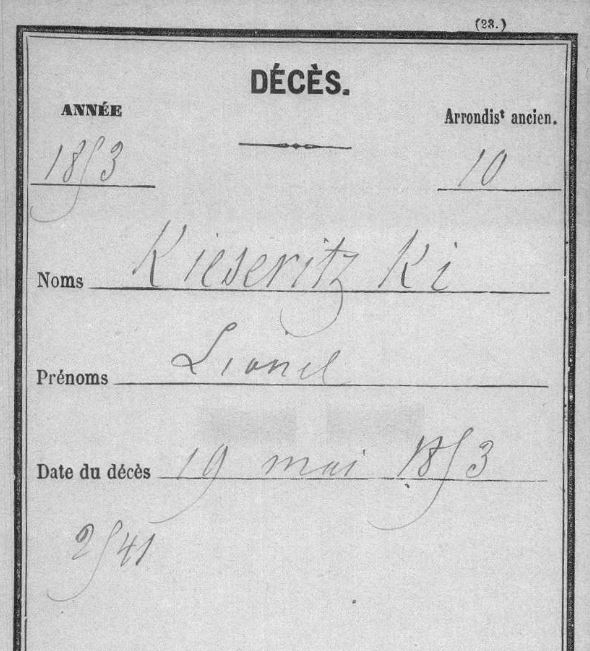 (23.)
DÉCÈS.
ANNÉE
Arrondist ancien.
1853
10
Noms Kieseritz Ki
Prénoms Lionel
Date du décès 19 mai 1853
2541